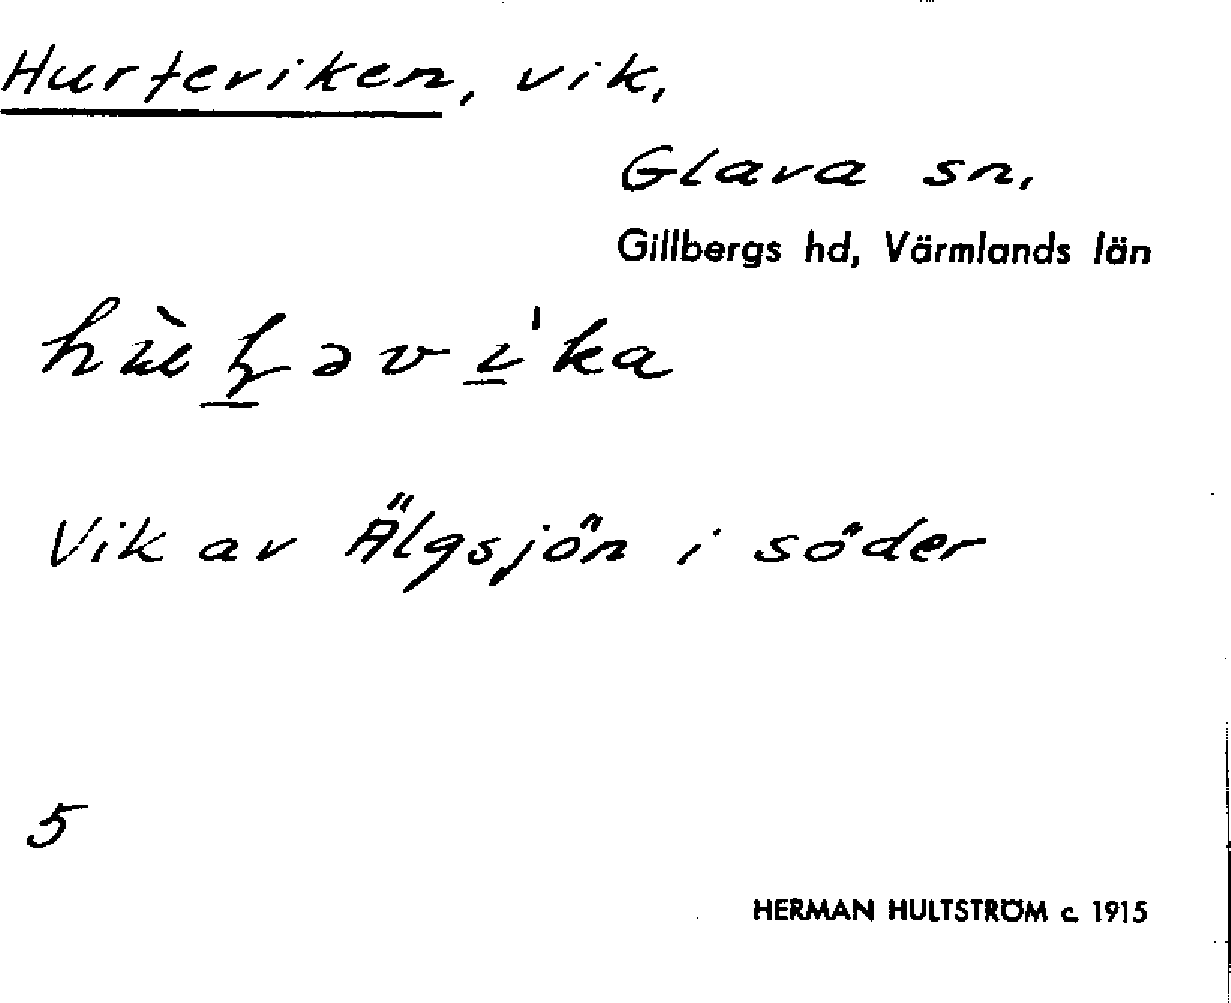 Hurteviken, vik,
Glava sn,
Gillbergs hd, Värmlands län
Vik av Älgsjön i söder
5
HERMAN HULTSTRÖM c. 1915